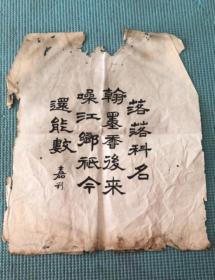 落落科名
翰墨香後來
噪江鄉祗今
還能數
嘉刊